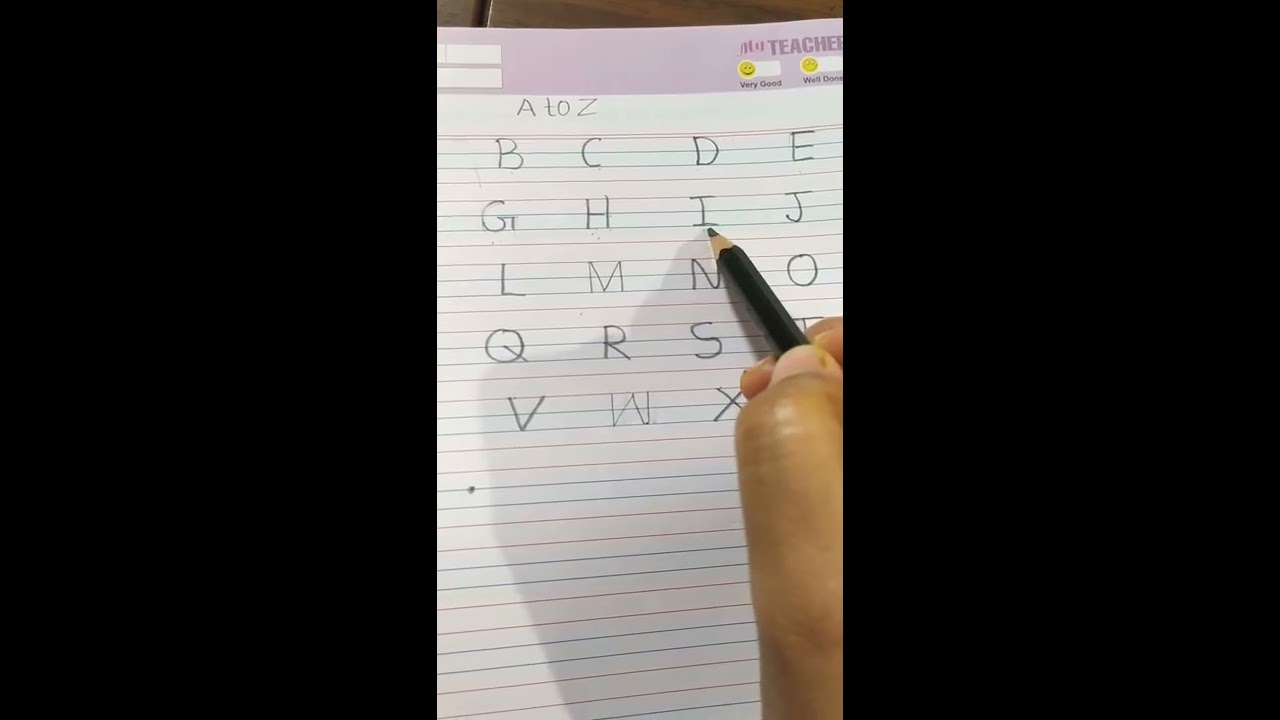 My TEACHER
Very Good Well Done
A to Z
B C D E
G H I J
L M N O
Q R S T
V W X